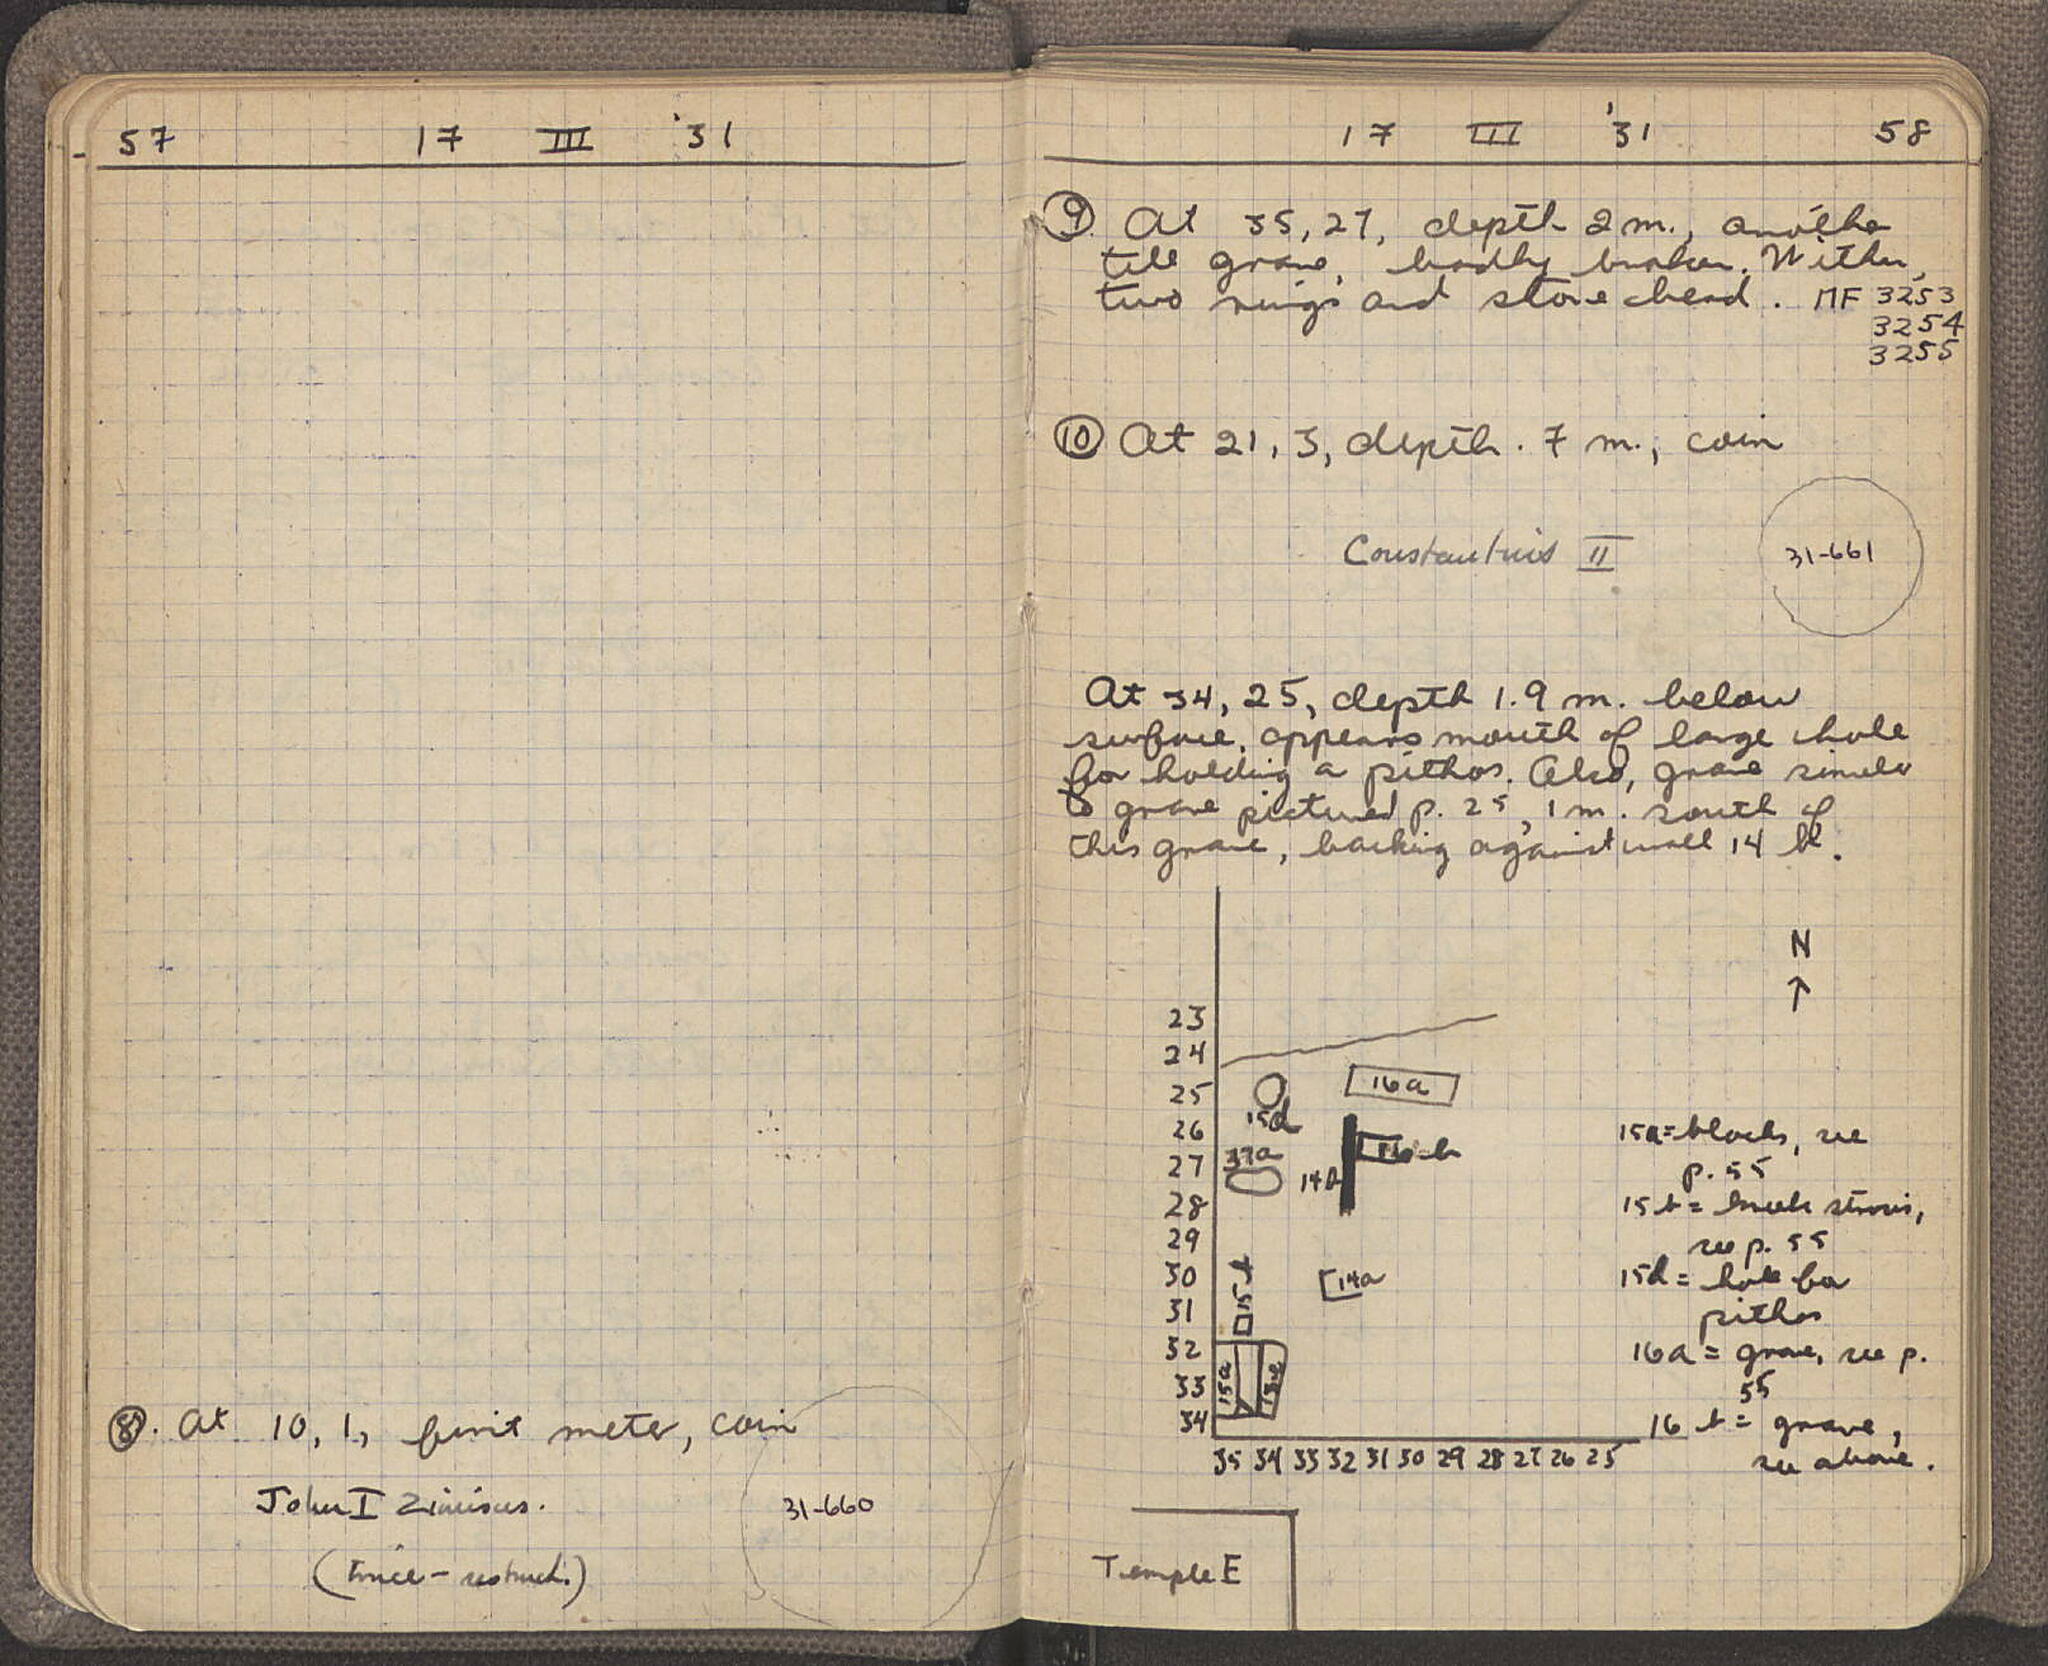 57 17 III '31
⑧. At 10, 1, first meter, coin
John I Zimisces.
31-660
(twice-restruck.)
17 III '31 58
⑨. At 35, 27, depth 2 m., another
tile grave, badly broken. Within,
two rings and stone bead. MF 3253
3254
3255
⑩ At 21, 3, depth .7 m., coin
Constantius II
31-661
At 34, 25, depth 1.9 m. below
surface, appears mouth of large hole
for holding a pithos. Also, grave similar
to grave pictured p. 25, 1 m. south of
this grave, backing against wall 14 b.
N
↑
23
24
25
26
27
28
29
30
31
32
33
34
16a
15d
37a
16 b
14b
15 b
14a
15a
35 34 33 32 31 30 29 28 27 26 25
15a = blocks, see
p. 55
15 b = brick struc.,
see p. 55
15d = hole for
pithos
16a = grave, see p.
55
16 b = grave,
see above.
Temple E